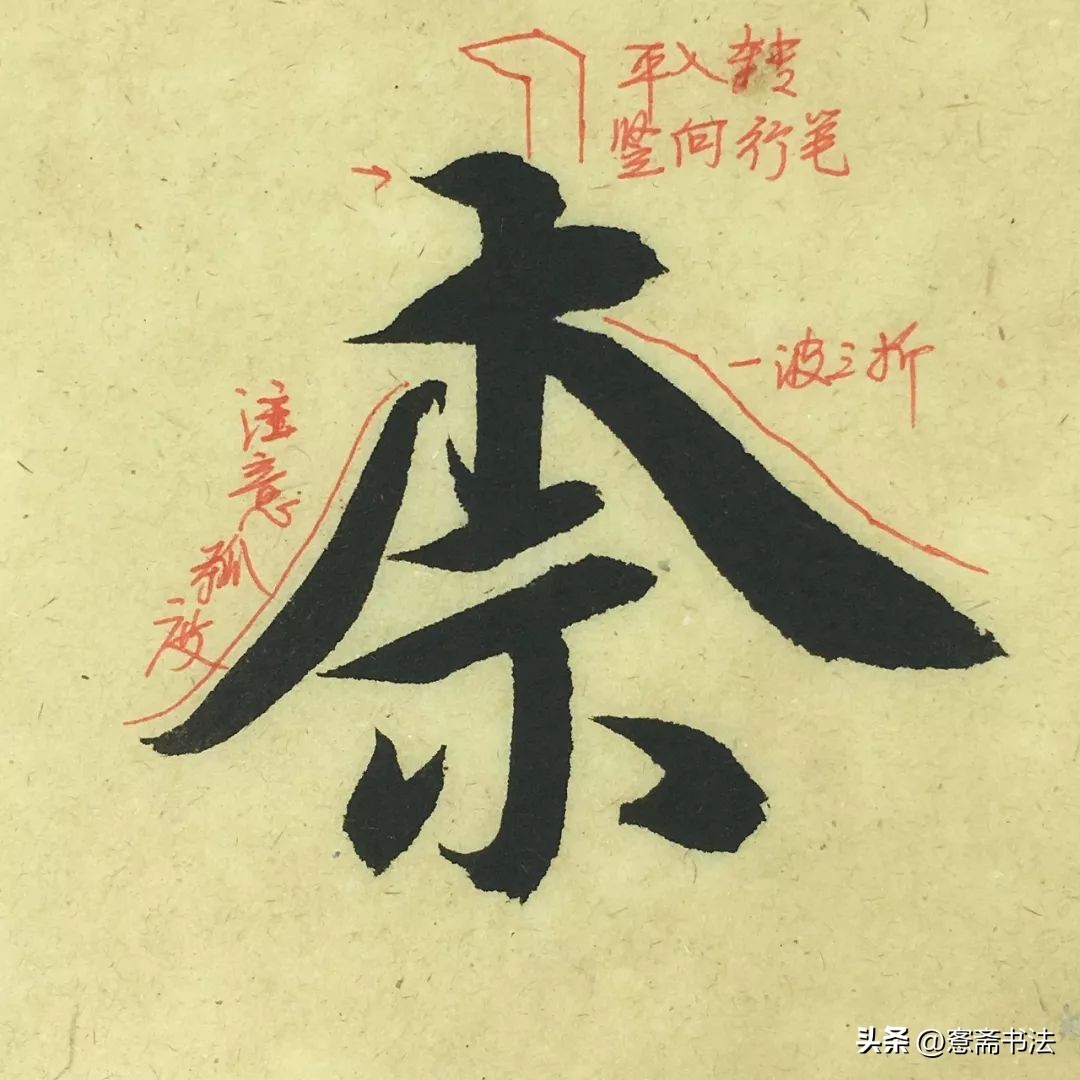 平入转
竖向行笔
柰
一波三折
注意弧度
头条 @愙斋书法